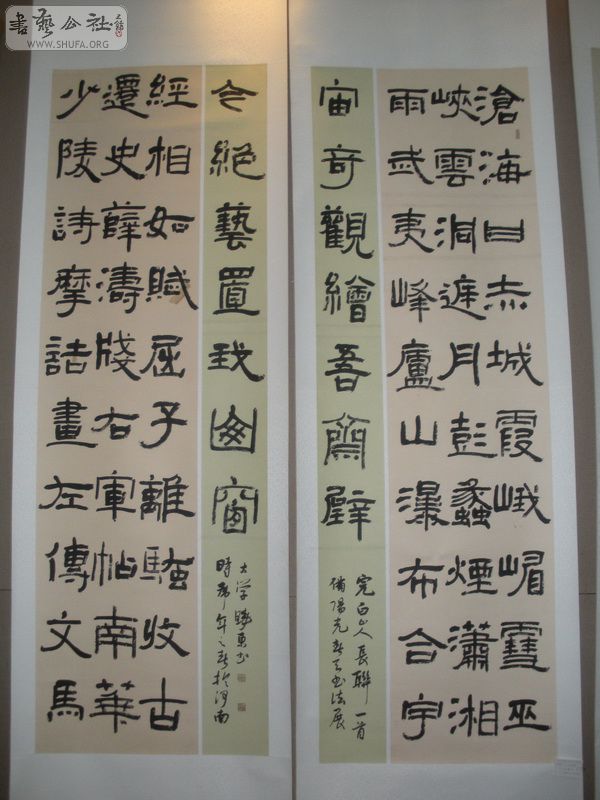 書藝公社
WWW.SHUFA.ORG
滄海日赤城霞峨嵋雪巫
峽雲洞庭月彭蠡煙瀟湘
雨武夷峰廬山瀑布合宇
宙奇觀繪吾齋壁
完白山人長聯一首
陽光 书法展
少陵詩摩詰畫左傳文馬
遷史薛濤牋右軍帖南華
經相如賦屈子離騷收古
今絕藝置我幽窗
大学 東书
時 年之春於河南